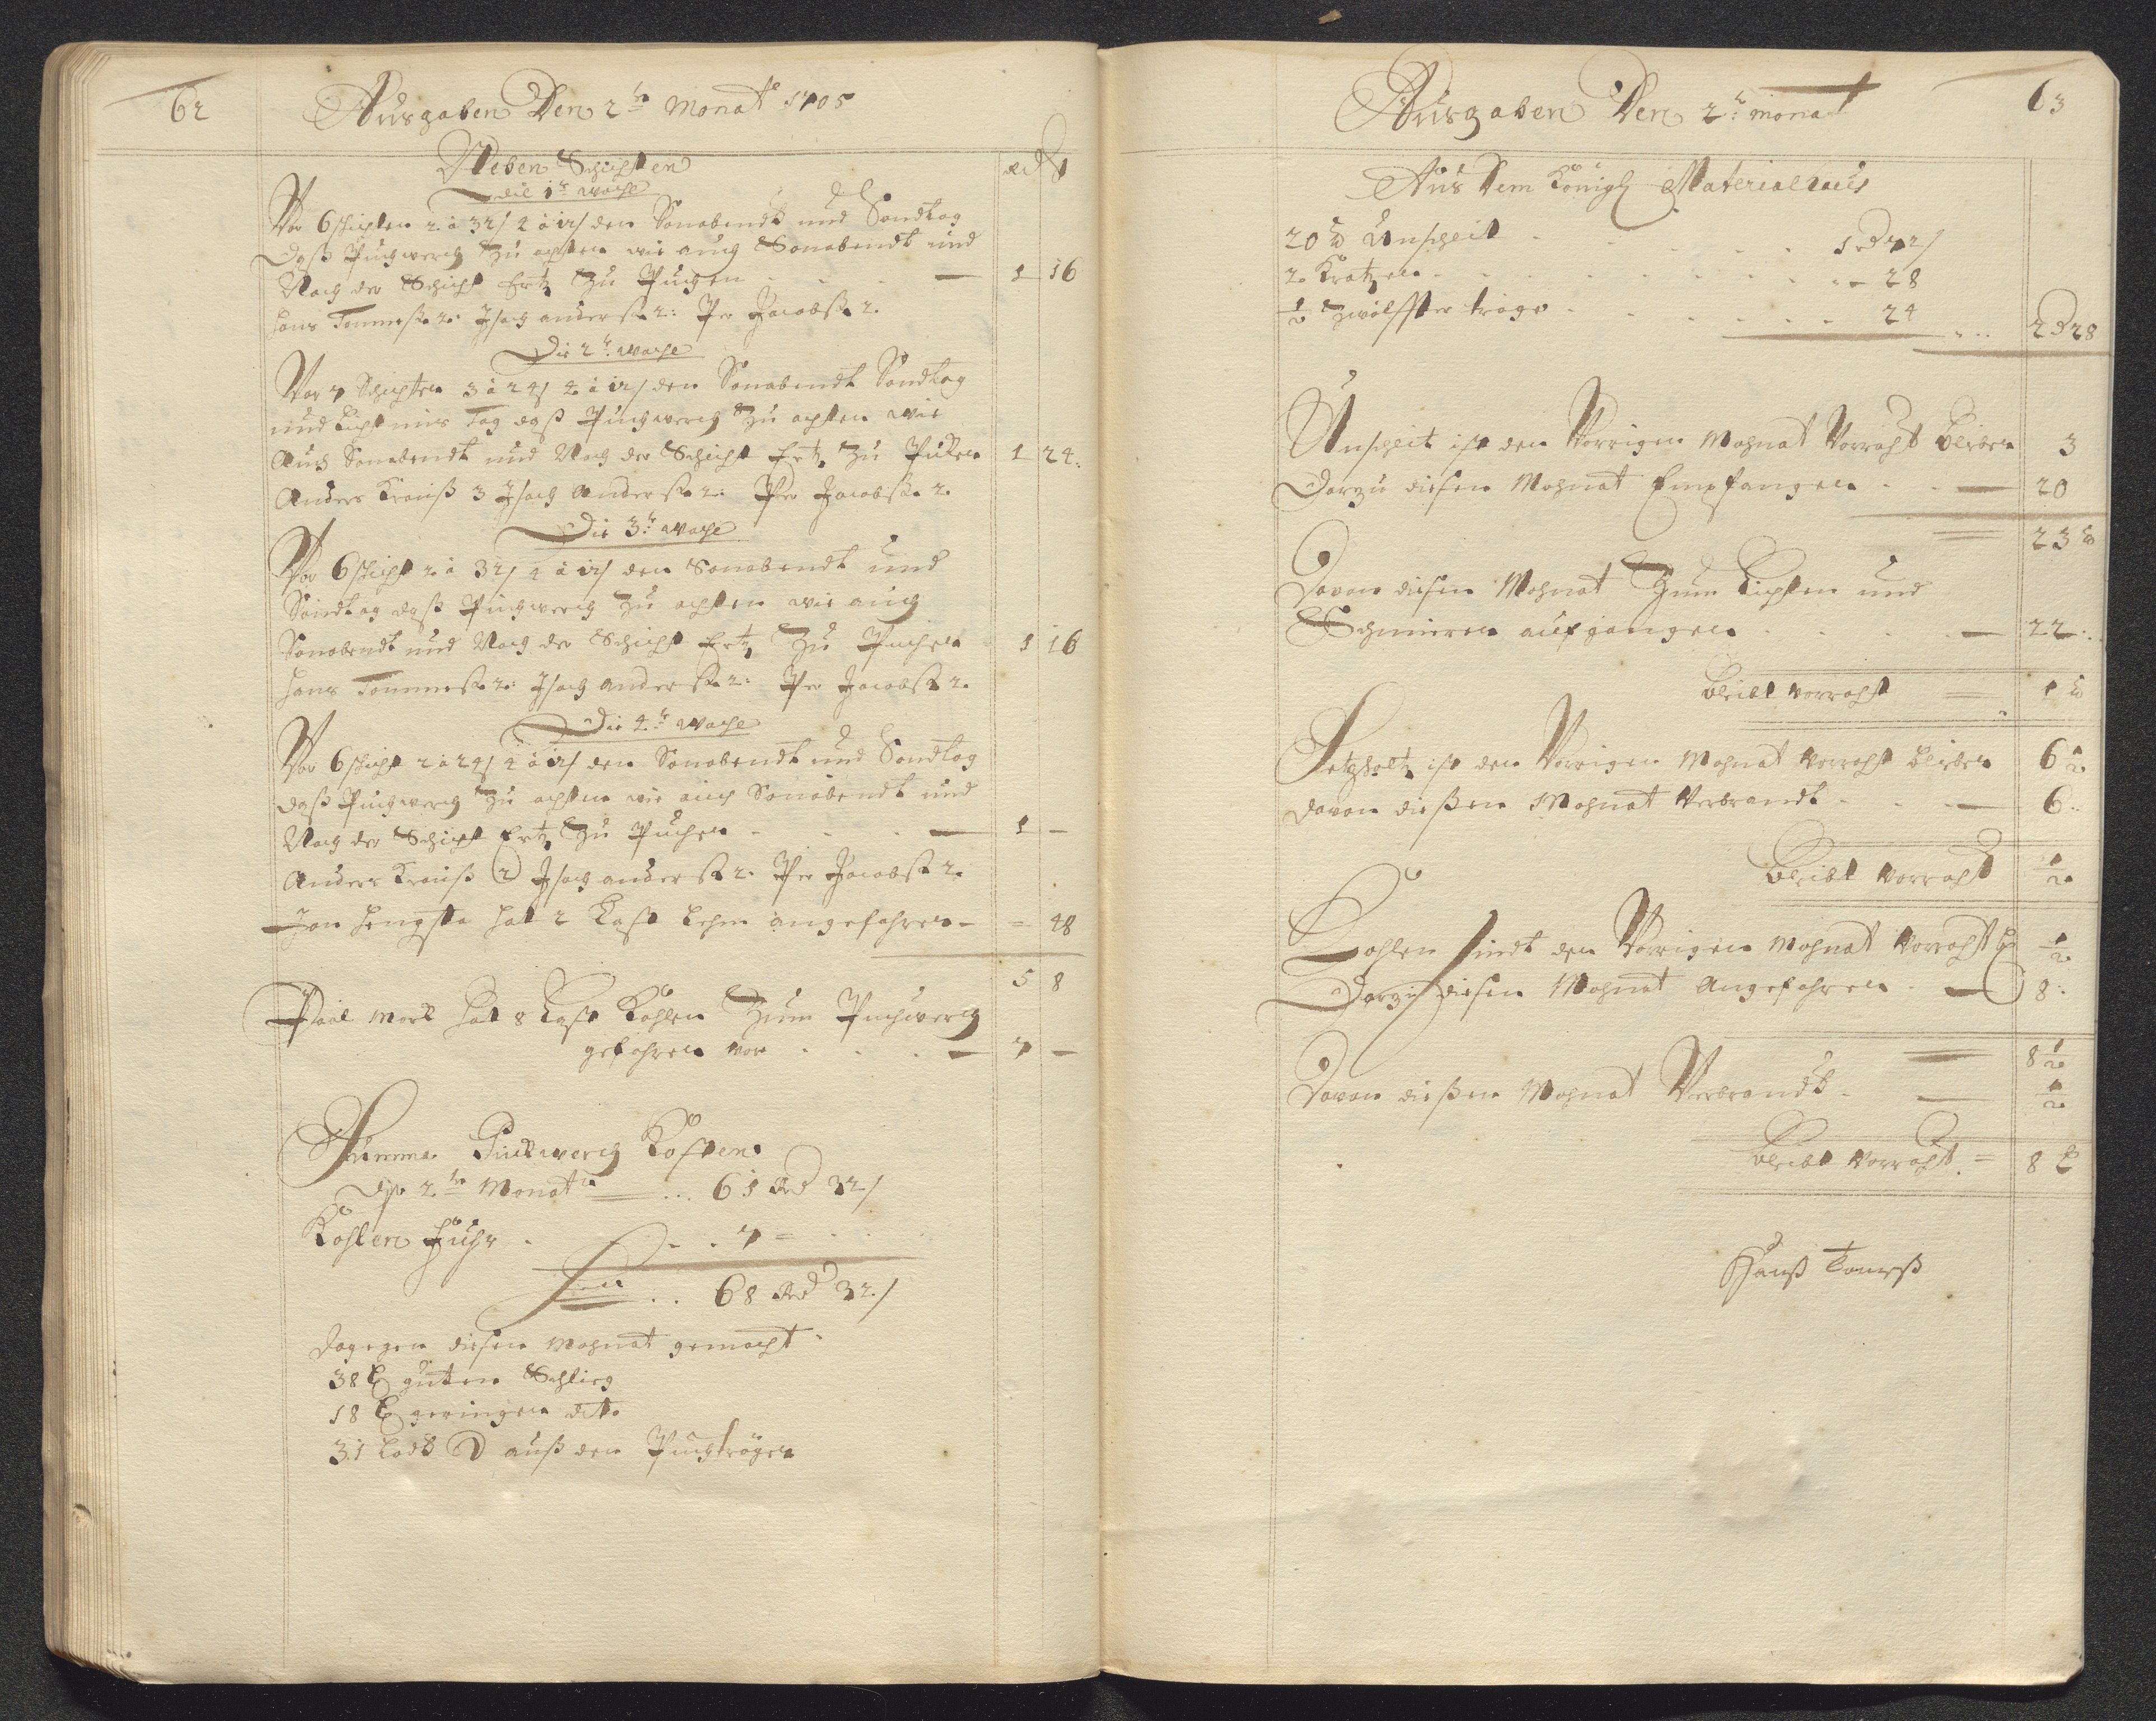 62
Ausgaben Den 2tn Monat 1705
Neben Schichten
Rd ß
die 1te woche
Vor 6 schichten 2 à 32/ 4 à 12/ den Sonabendt und Sondtag
daß Puchwerch Zu achten wie auch Sonabendt und
Nach der Schicht Ertz Zu Puchen - - - 1 16
Hans Tommeß 2: Isach anderß 2: Per Jacobß 2.
Die 2te woche
Vor 7 Schichten 3 à 24/ 4 à 12/ den Sonabendt Sondtag
und Lichtmis Tag daß Puchwerch Zu achten wie
Auch Sonabendt und Nach der Schicht Ertz Zu Puken 1 24:
Anders Krauß 3 Isach Anderß 2: Per Jacobß 2.
Die 3te woche
Vor 6 schicht 2 à 32/ 4 à 12/ den Sonabendt und
Sondtag daß Puchwerch Zu achten wie auch
Sonabendt und Nach der Schicht Ertz Zu Puchen 1 16
Hans Tommeß 2: Isach anderß 2: Per Jacobß 2.
Die 4te woche
Vor 6 schicht 2 à 24/ 4 à 12/ den Sonabendt und Sondtag
daß Puchwerch Zu achten wie auch Sonabendt und
Nach der Schicht Ertz Zu Puchen - - - 1 -
Anders Krauß 2 Isach anderß 2. Per Jacobß 2.
Jon Hengsta hat 2 Last Lehm angefahren - = 48
5 8
Paal Mork hat 8 Last Kohlen Zum Puchwerch
gefahren vor - - - 7 -
Summa Puckwerch Kosten
diß 2tn Monats = ... 61 Rd 32/
Kohlen Fuhr - - - 7 =
Su .. 68 Rd 32/
Dagegen diesen Mohnat gemacht
38 C guten Schlieg
18 C geringen dito
31 Lodt auß den Puchtrögen
63
Ausgaben Den 2t: monat
Aus Dem Königl Materialhaus
20 ℔ Unscheit - - - 1 D 72/
2. Kratzen - - - 28
½ Zwölffter tröge - - - 24
2 D 28
Unscheit ist den Vorrigen Mohnat Vorraht bliben 3
Darzu diesen Mohnat Empfangen - - 20
23 ℔
Davon diesen Mohnat Zum Lichten und
Schmiren aufgangen - - - 22:
bleibt vorraht = 1 ℔
Setzholtz ist den Vorrigen Mohnat vorraht bliben 6½
davon dießen Mohnat Verbrandt - - 6:
bleibt vorraht ½
Kohlen sindt den Vorrigen Mohnat vorraht ½
Darzu diesen Mohnat Angefahren - 8:
8½
Davon dießen Mohnat Verbrandt - ½
bleibt vorraht = 8 L
Hanß Tomeß